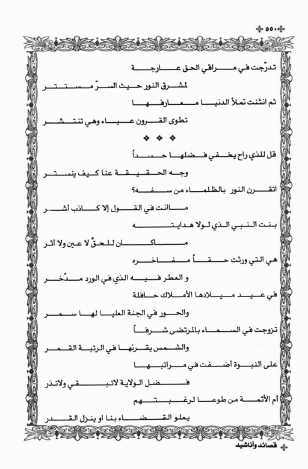 ٥٥٠
تدرّجت في مراقي الحق عارجة
لمشرق النور حيث السرّ مستتر
ثم انثنت تملأ الدنيا معارفها
تطوى القرون عياء وهي تنتشر
قل للذي راح يخفي فضلها حسداً
وجه الحقيقة عنا كيف ينستر
اتقرن النور بالظلماء من سفه؟
ما انت في القول إلا كاذب أشر
بنت النبي الذي لولا هدايته
ما كان للحقّ لا عين ولا أثر
هي التي ورثت حقاً مفاخره
و العطر فيه الذي في الورد مدّخر
في عيد ميلادها الأملاك حافلة
والحور في الجنة العليا لها سمر
تزوجت في السماء بالمرتضى شرفاً
والشمس يقرنها في الرتبة القمر
على النبوة أضفت في مراتبها
فضل الولاية لا تبقي ولا تذر
أم الأئمة من طوعا لرغبتهم
يعلو القضاء بنا او ينزل القدر
قصائد وأناشيد